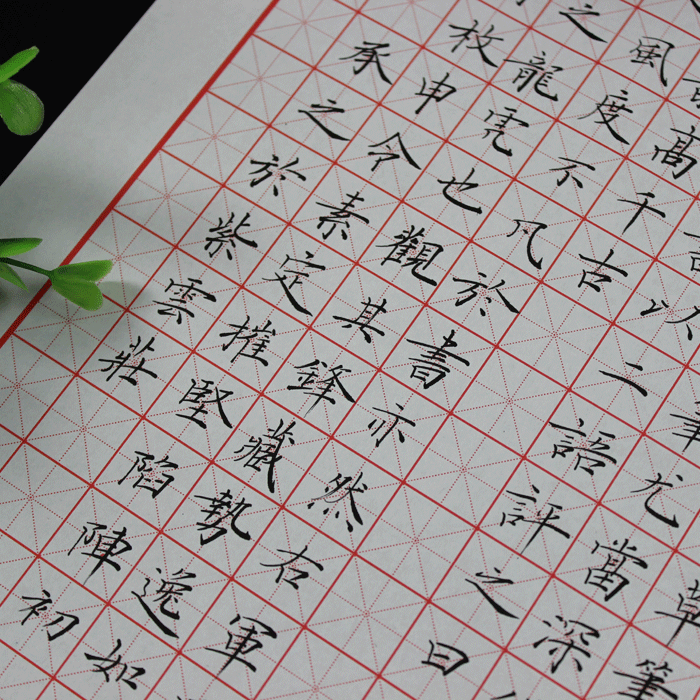 單筆
尤當深
以二語評之曰
高千古
風度不凡於書亦然右軍
之龍也觀其鋒藏勢逸如
枚申令素定摧堅陷陣初
承之於紫雲莊